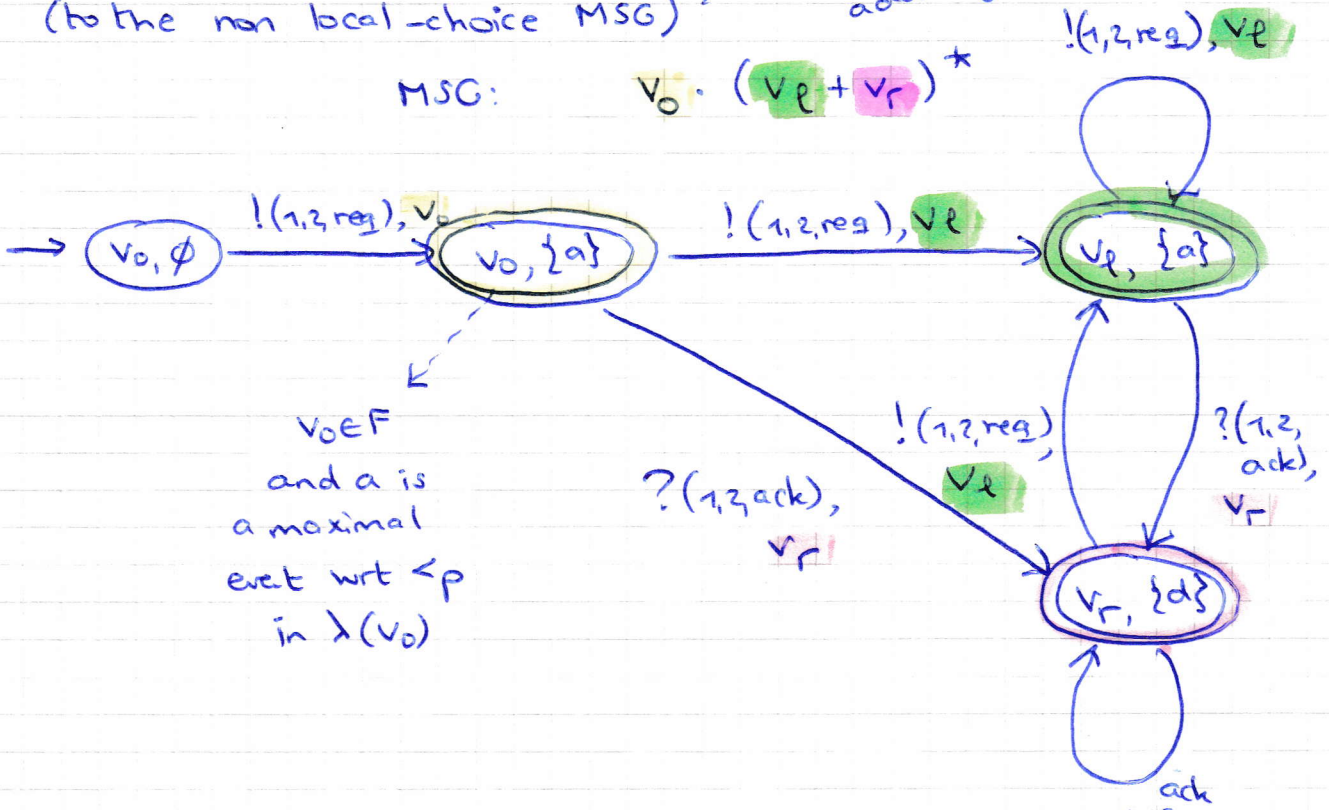 (to the non local-choice MSG)
!(1,2,req), vℓ
MSG: v₀ · (vℓ + vᵣ)*
!(1,2,req), v₀
!(1,2,req), vℓ
v₀, ∅
v₀, {a}
vℓ, {a}
v₀ ∈ F
and a is
a maximal
event wrt <p
in λ(v₀)
?(1,2,ack),
vᵣ
!(1,2,req),
vℓ
?(1,2,
ack),
vᵣ
vᵣ, {d}
ack